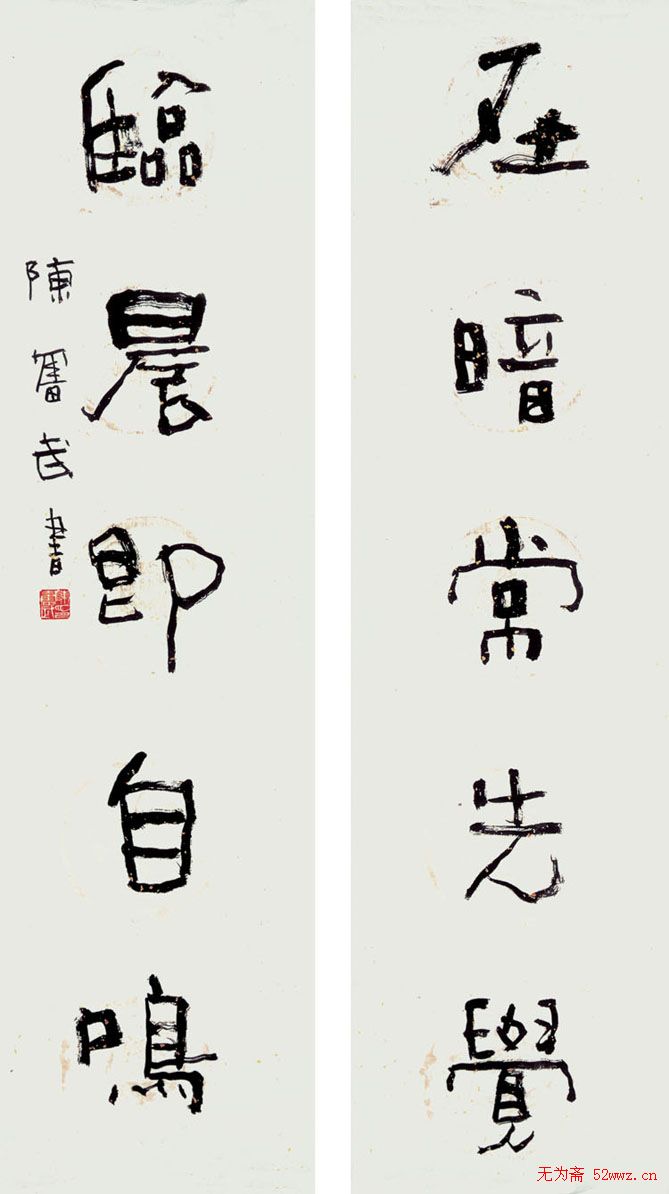 在暗常先覺
臨晨即自鳴
陳奮武書
无为斋 52wwz.cn